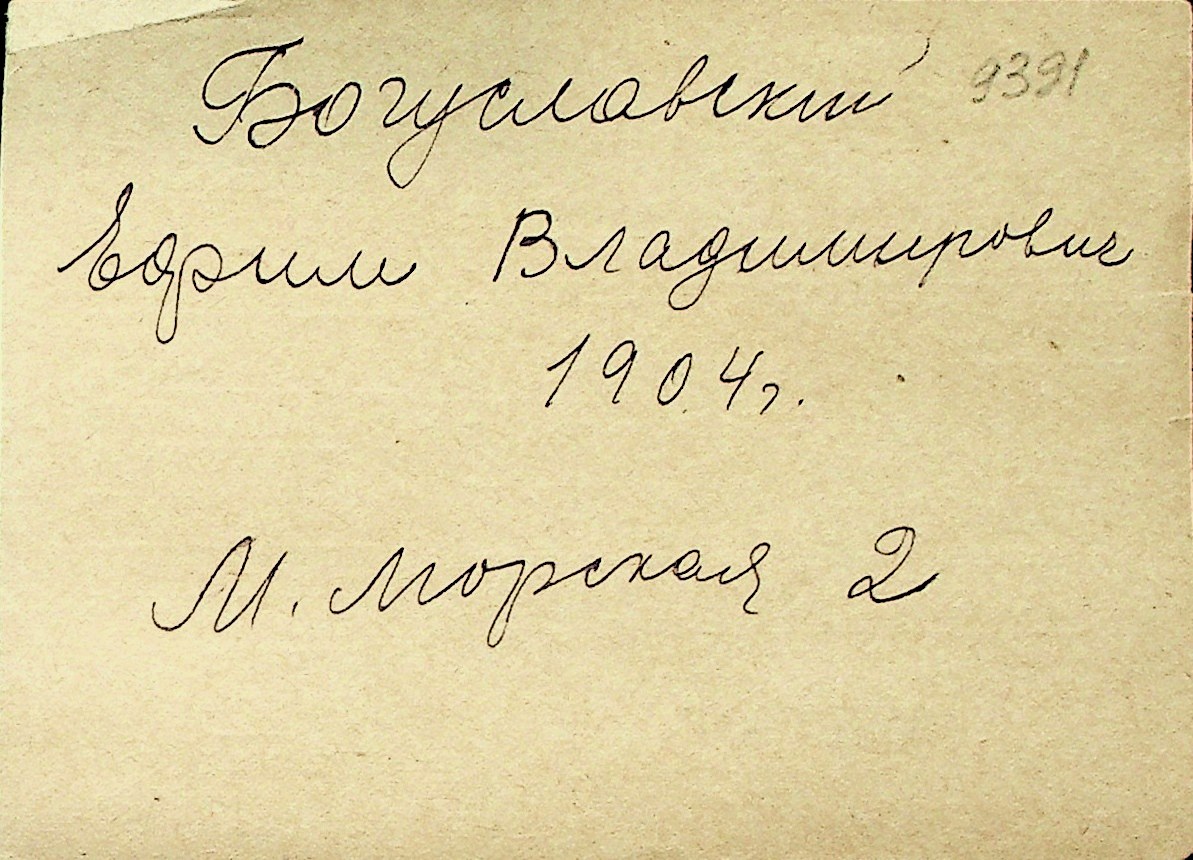 Богуславский 9391
Ефрим Владимирович
1904г.
М. Морская 2